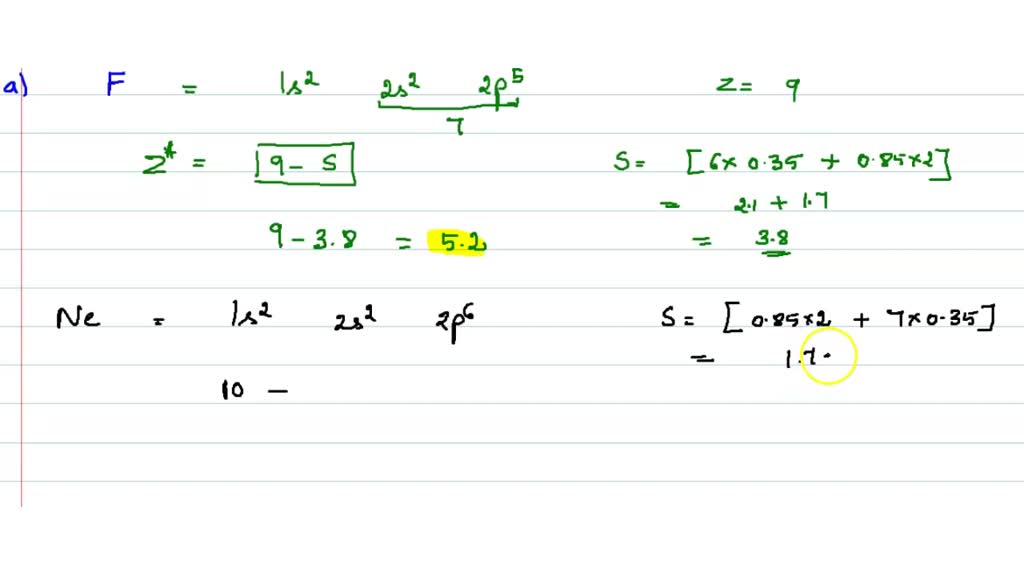 a) F = 1s² 2s² 2p⁵ Z = 9
7
Z* = 9 - S S = [6 × 0.35 + 0.85×2]
= 2.1 + 1.7
9 - 3.8 = 5.2 = 3.8
Ne = 1s² 2s² 2p⁶ S = [0.85×2 + 7×0.35]
= 1.7
10 -